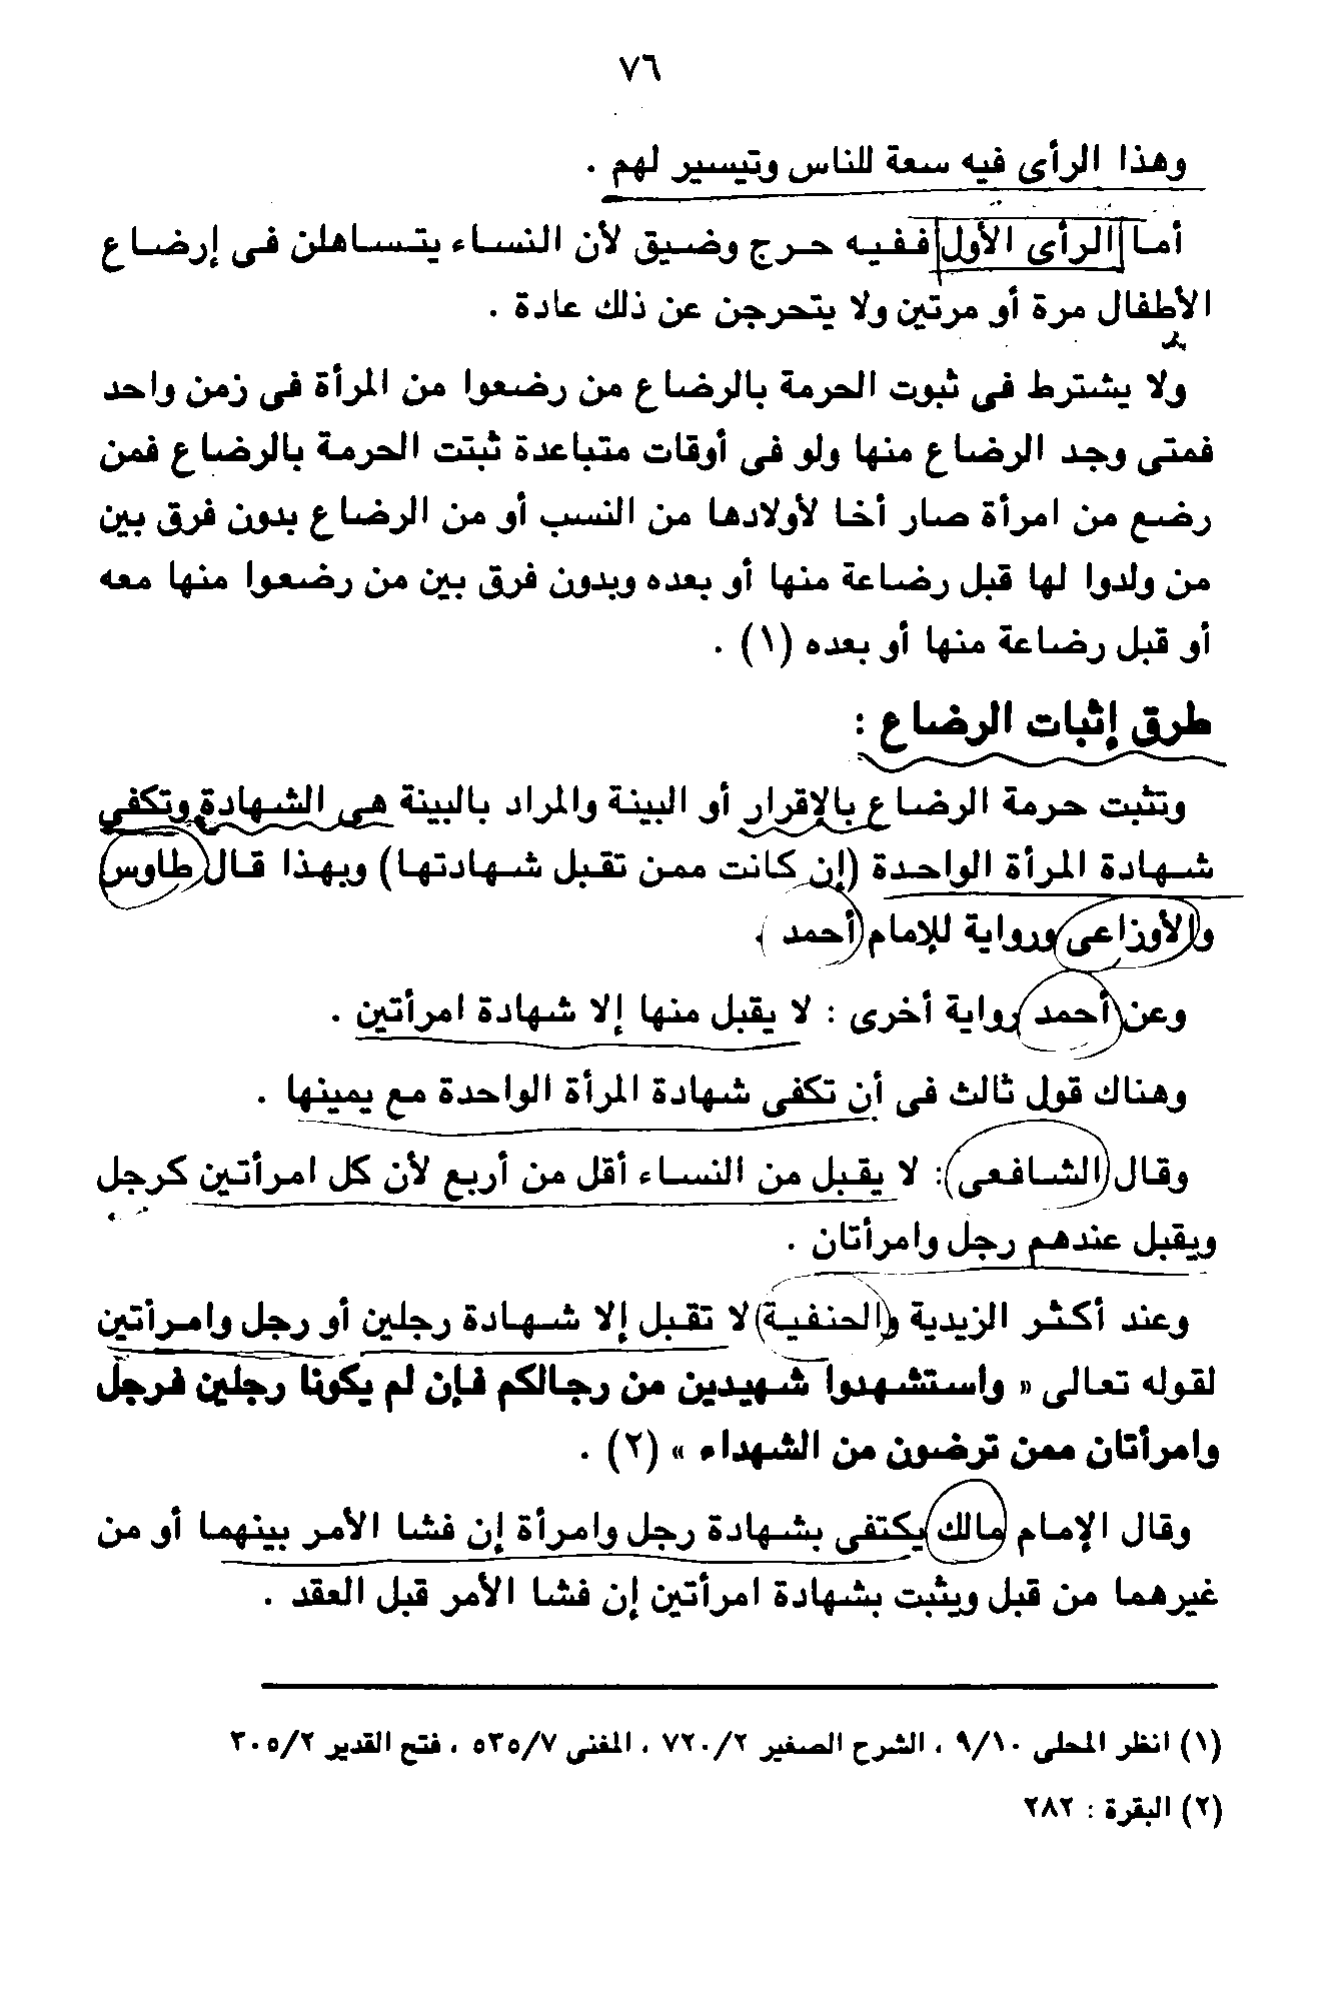 ٧٦
وهذا الرأى فيه سعة للناس وتيسير لهم .
أما الرأى الأول ففيه حرج وضيق لأن النساء يتساهلن فى إرضاع
الأطفال مرة أو مرتين ولا يتحرجن عن ذلك عادة .
ولا يشترط فى ثبوت الحرمة بالرضاع من رضعوا من المرأة فى زمن واحد
فمتى وجد الرضاع منها ولو فى أوقات متباعدة ثبتت الحرمة بالرضاع فمن
رضع من امرأة صار أخا لأولادها من النسب أو من الرضاع بدون فرق بين
من ولدوا لها قبل رضاعة منها أو بعده وبدون فرق بين من رضعوا منها معه
أو قبل رضاعة منها أو بعده (١) .
طرق إثبات الرضاع :
وتثبت حرمة الرضاع بالإقرار أو البينة والمراد بالبينة هى الشهادة وتكفى
شهادة المرأة الواحدة (إن كانت ممن تقبل شهادتها) وبهذا قال طاوس
والأوزاعى ورواية للإمام أحمد .
وعن أحمد رواية أخرى : لا يقبل منها إلا شهادة امرأتين .
وهناك قول ثالث فى أن تكفى شهادة المرأة الواحدة مع يمينها .
وقال الشافعى : لا يقبل من النساء أقل من أربع لأن كل امرأتين كرجل
ويقبل عندهم رجل وامرأتان .
وعند أكثر الزيدية والحنفية لا تقبل إلا شهادة رجلين أو رجل وامرأتين
لقوله تعالى « واستشهدوا شهيدين من رجالكم فإن لم يكونا رجلين فرجل
وامرأتان ممن ترضون من الشهداء » (٢) .
وقال الإمام مالك يكتفى بشهادة رجل وامرأة إن فشا الأمر بينهما أو من
غيرهما من قبل ويثبت بشهادة امرأتين إن فشا الأمر قبل العقد .
(١) انظر المحلى ٩/١٠ ، الشرح الصغير ٧٢٠/٢ ، المغنى ٥٣٥/٧ ، فتح القدير ٣٠٥/٢
(٢) البقرة : ٢٨٢